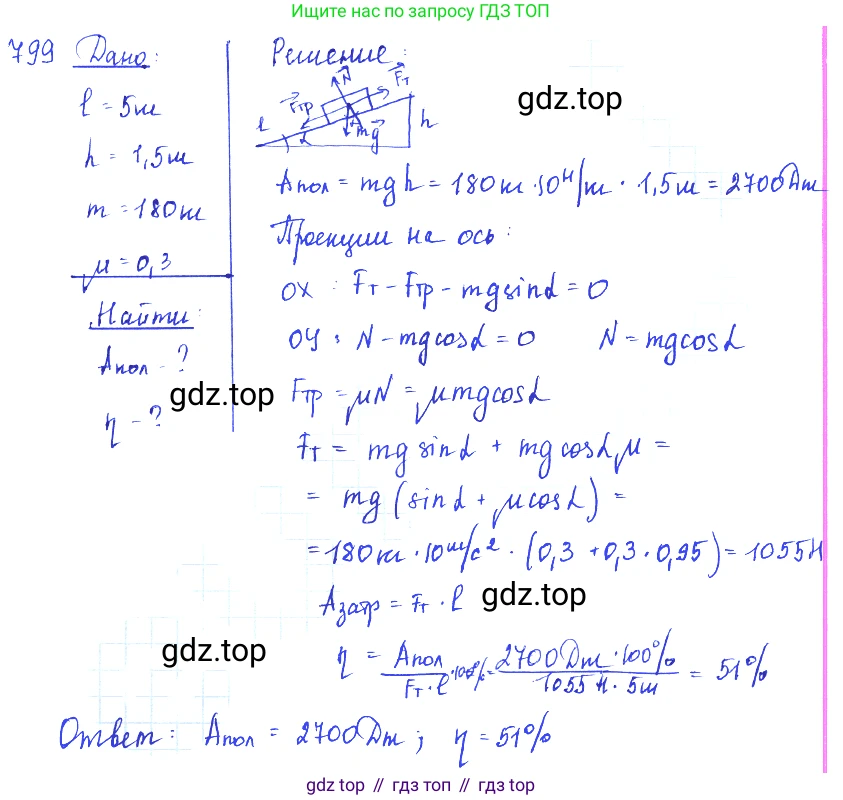 Ищите нас по запросу ГДЗ ТОП
799 Дано: Решение:
l = 5м
h = 1,5м
m = 180кг
μ = 0,3
Найти:
Aпол - ?
η - ?
N Fт Fтр mg l α h
gdz.top
Aпол = mgh = 180кг · 10Н/кг · 1,5м = 2700Дж
Проекции на ось:
OX : Fт - Fтр - mgsinα = 0
OY : N - mgcosα = 0 N = mgcosα
gdz.top
Fтр = μN = μmgcosα
Fт = mg sinα + mg cosα μ =
= mg (sinα + μcosα) =
= 180кг · 10м/с² · (0,3 + 0,3 · 0,95) = 1055Н
Aзатр = Fт · l
gdz.top
gdz.top
η = Aпол / Fт · l · 100% = 2700Дж · 100% / 1055 Н · 5м = 51%
Ответ: Aпол = 2700Дж; η = 51%
gdz.top // гдз топ // gdz.top